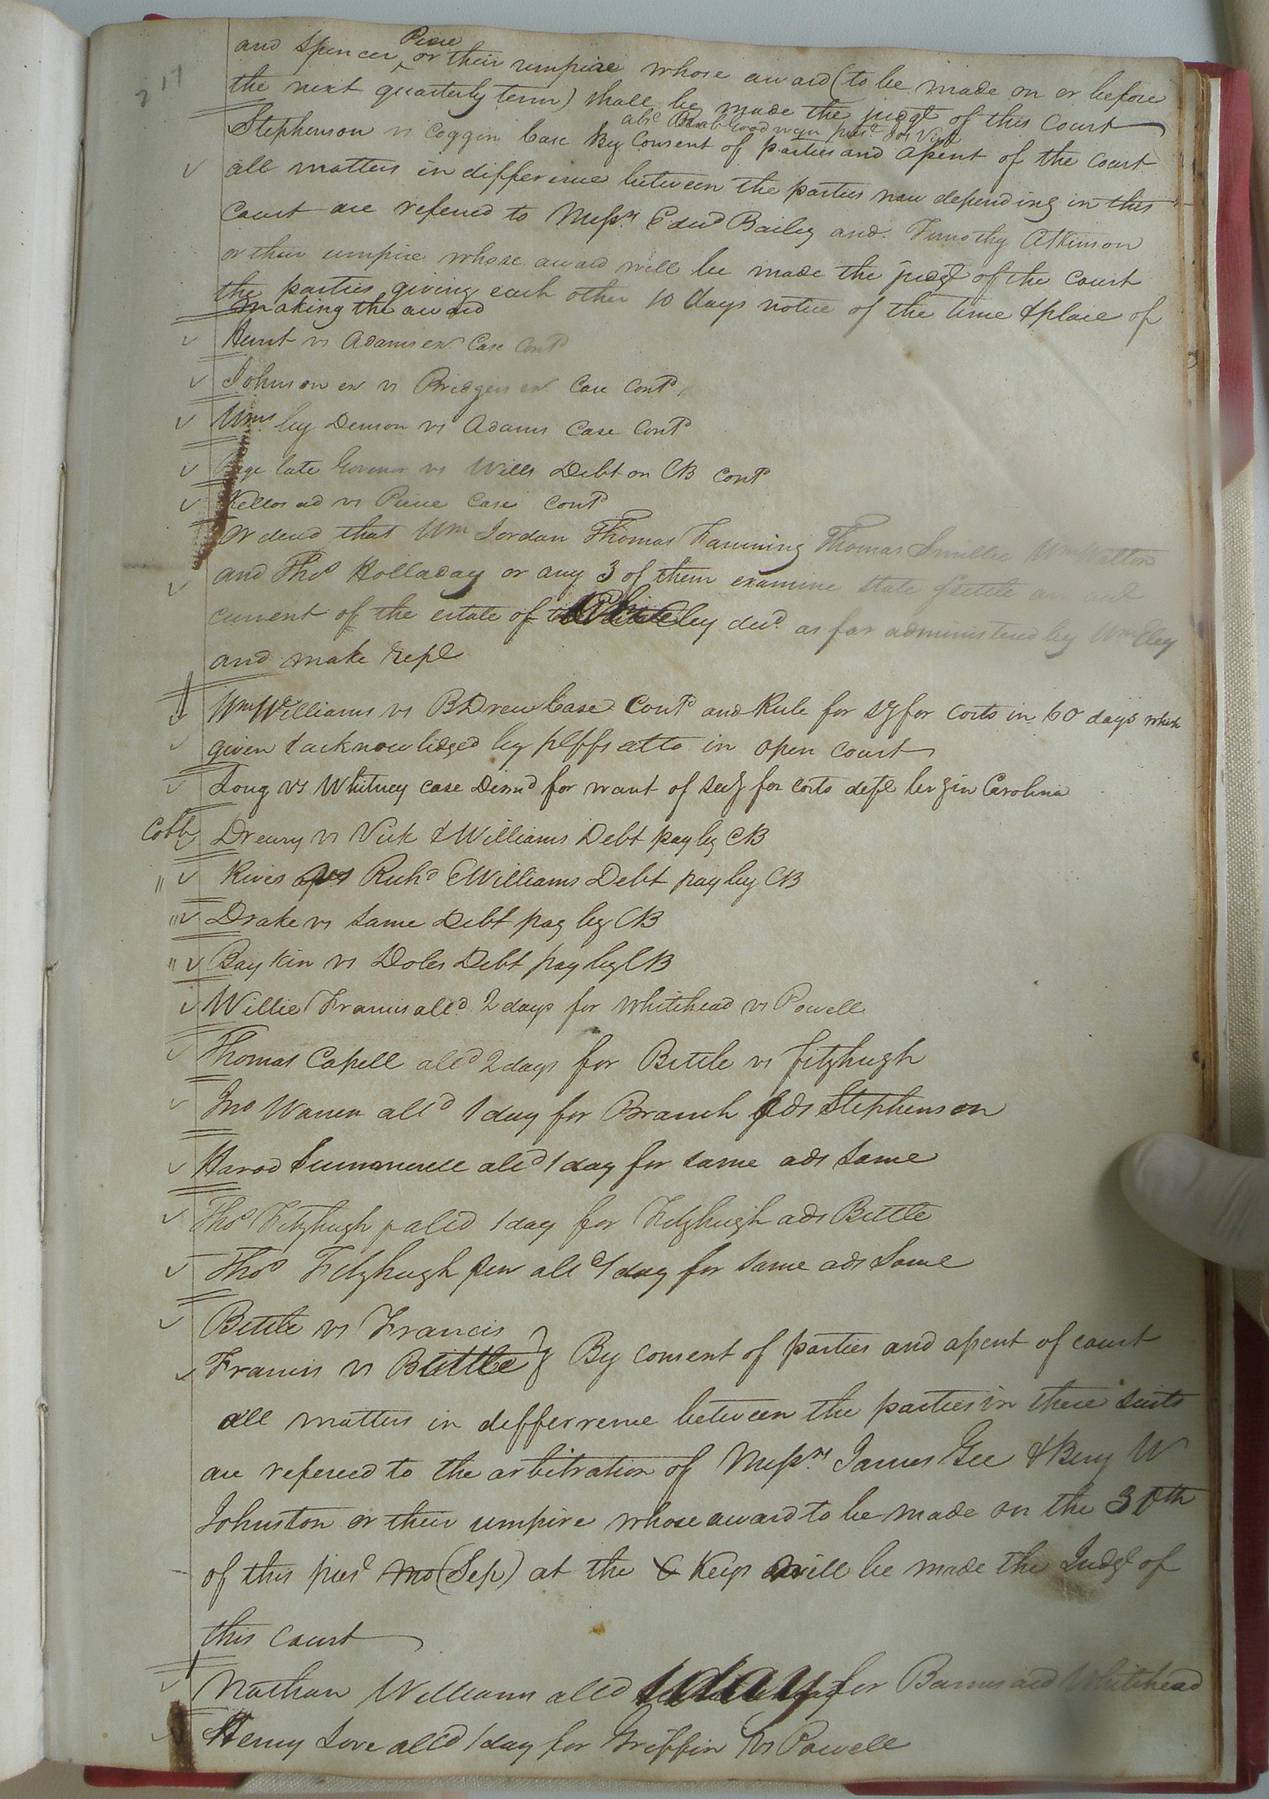 217
and Spencer Pierce or their umpire whose award (to be made on or before
the next quarterly term) shall be made the judgt of this Court
Stephenson vs Coggin Case By Consent of parties and assent of the court
all matters in difference between the parties now depending in this
Court are refered to Messrs Edwd Bailey and Timothy Atkinson
or their umpire whose award will be made the judgt of the Court
the parties giving each other 10 days notice of the time & place of
making the award
Hunt vs Adams exr Case Contd
Johnson ex vs Bridgers ex Case Contd
Wms by Denson vs Adams Case Contd
Page late Govenor vs Wills Debt on CB Contd
Kellos ad vs Pierce Case Contd
Ordered that Wm Jordan Thomas Fanning Thomas
and Thos Holladay or any 3 of them examine state & settle
current of the estate of Eley decd as far administered by Wm Eley
and make Rept
Wm Williams vs B Drew Case Contd and Rule for sy for costs in 60 days which
given & acknowledged by pltffs atto in open court
Long vs Whitney case Dismd for want of secy for costs in Carolina
Cobb Drewry vs Vick & Williams Debt pay by CB
" Rives vs Richd Williams Debt pay by CB
" Drake vs Same Debt pay by CB
" Boykin vs Doles Debt pay by CB
Willie Francis alld 2 days for Whitehead vs Powell
Thomas Capell alld 2 days for Bittle vs Fitzhugh
Jno Warren alld 1 day for Branch ads Stephenson
Harod Summerell alld 1 day for same ads Same
Thos Fitzhugh alld 1 day for Fitzhugh ads Bittle
Thos Fitzhugh Senr alld 1 day for same ads Same
Bittle vs Francis
Francis vs Bittle } By consent of parties and assent of court
all matters in differrence between the parties in these suits
are refered to the arbitration of Messrs James Gee & Benj W
Johnston or their umpire whose award to be made on the 30th
of this prest mo (Sep) at the X Keys will be made the Judgt of
this Court
Nathan Williams alld 1 day for Barnes ad Whitehead
Henry Love alld 1 day for Griffin vs Powell